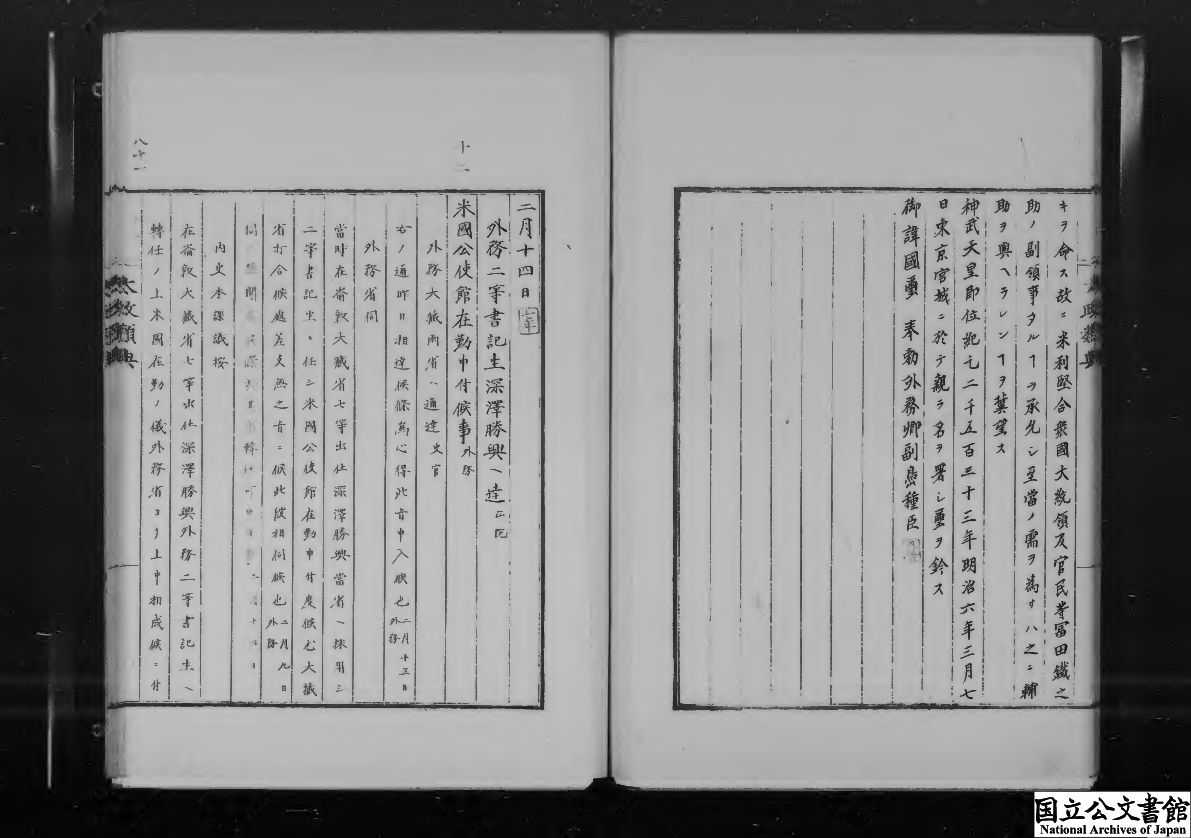 キヲ命ス故ニ米利堅合衆國大統領及官民等冨田鐵之
助ノ副領事タルヿヲ承允シ至當ノ需ヲ為サハ之ニ輔
助ヲ與ヘラレンヿヲ冀望ス
神武天皇即位紀元二千五百三十三年明治六年三月七
日東京宮城ニ於テ親ラ名ヲ署シ璽ヲ鈐ス
御諱國璽 奉勅外務卿副島種臣
十二
二月十四日 七年
外務二等書記生深澤勝興ヘ達 正院
米國公使館在勤申付候事 外務
外務大藏兩省ヘ通達 史官
右ノ通昨日相達候條為心得此旨申入候也 二月十五日 外務
外務省伺
當時在崙敦大藏省七等出仕深澤勝興當省ヘ採用三
二等書記生ニ任シ米國公使館在勤申付度候尤大藏
省打合候處差支無之旨ニ候此段相伺候也 二月九日 外務
伺
内史本課議按
在崙敦大藏省七等出仕深澤勝興外務二等書記生ヘ
轉任ノ上米國在勤ノ儀外務省ヨリ上申相成候ニ付
八十一
太政類典
国立公文書館
National Archives of Japan